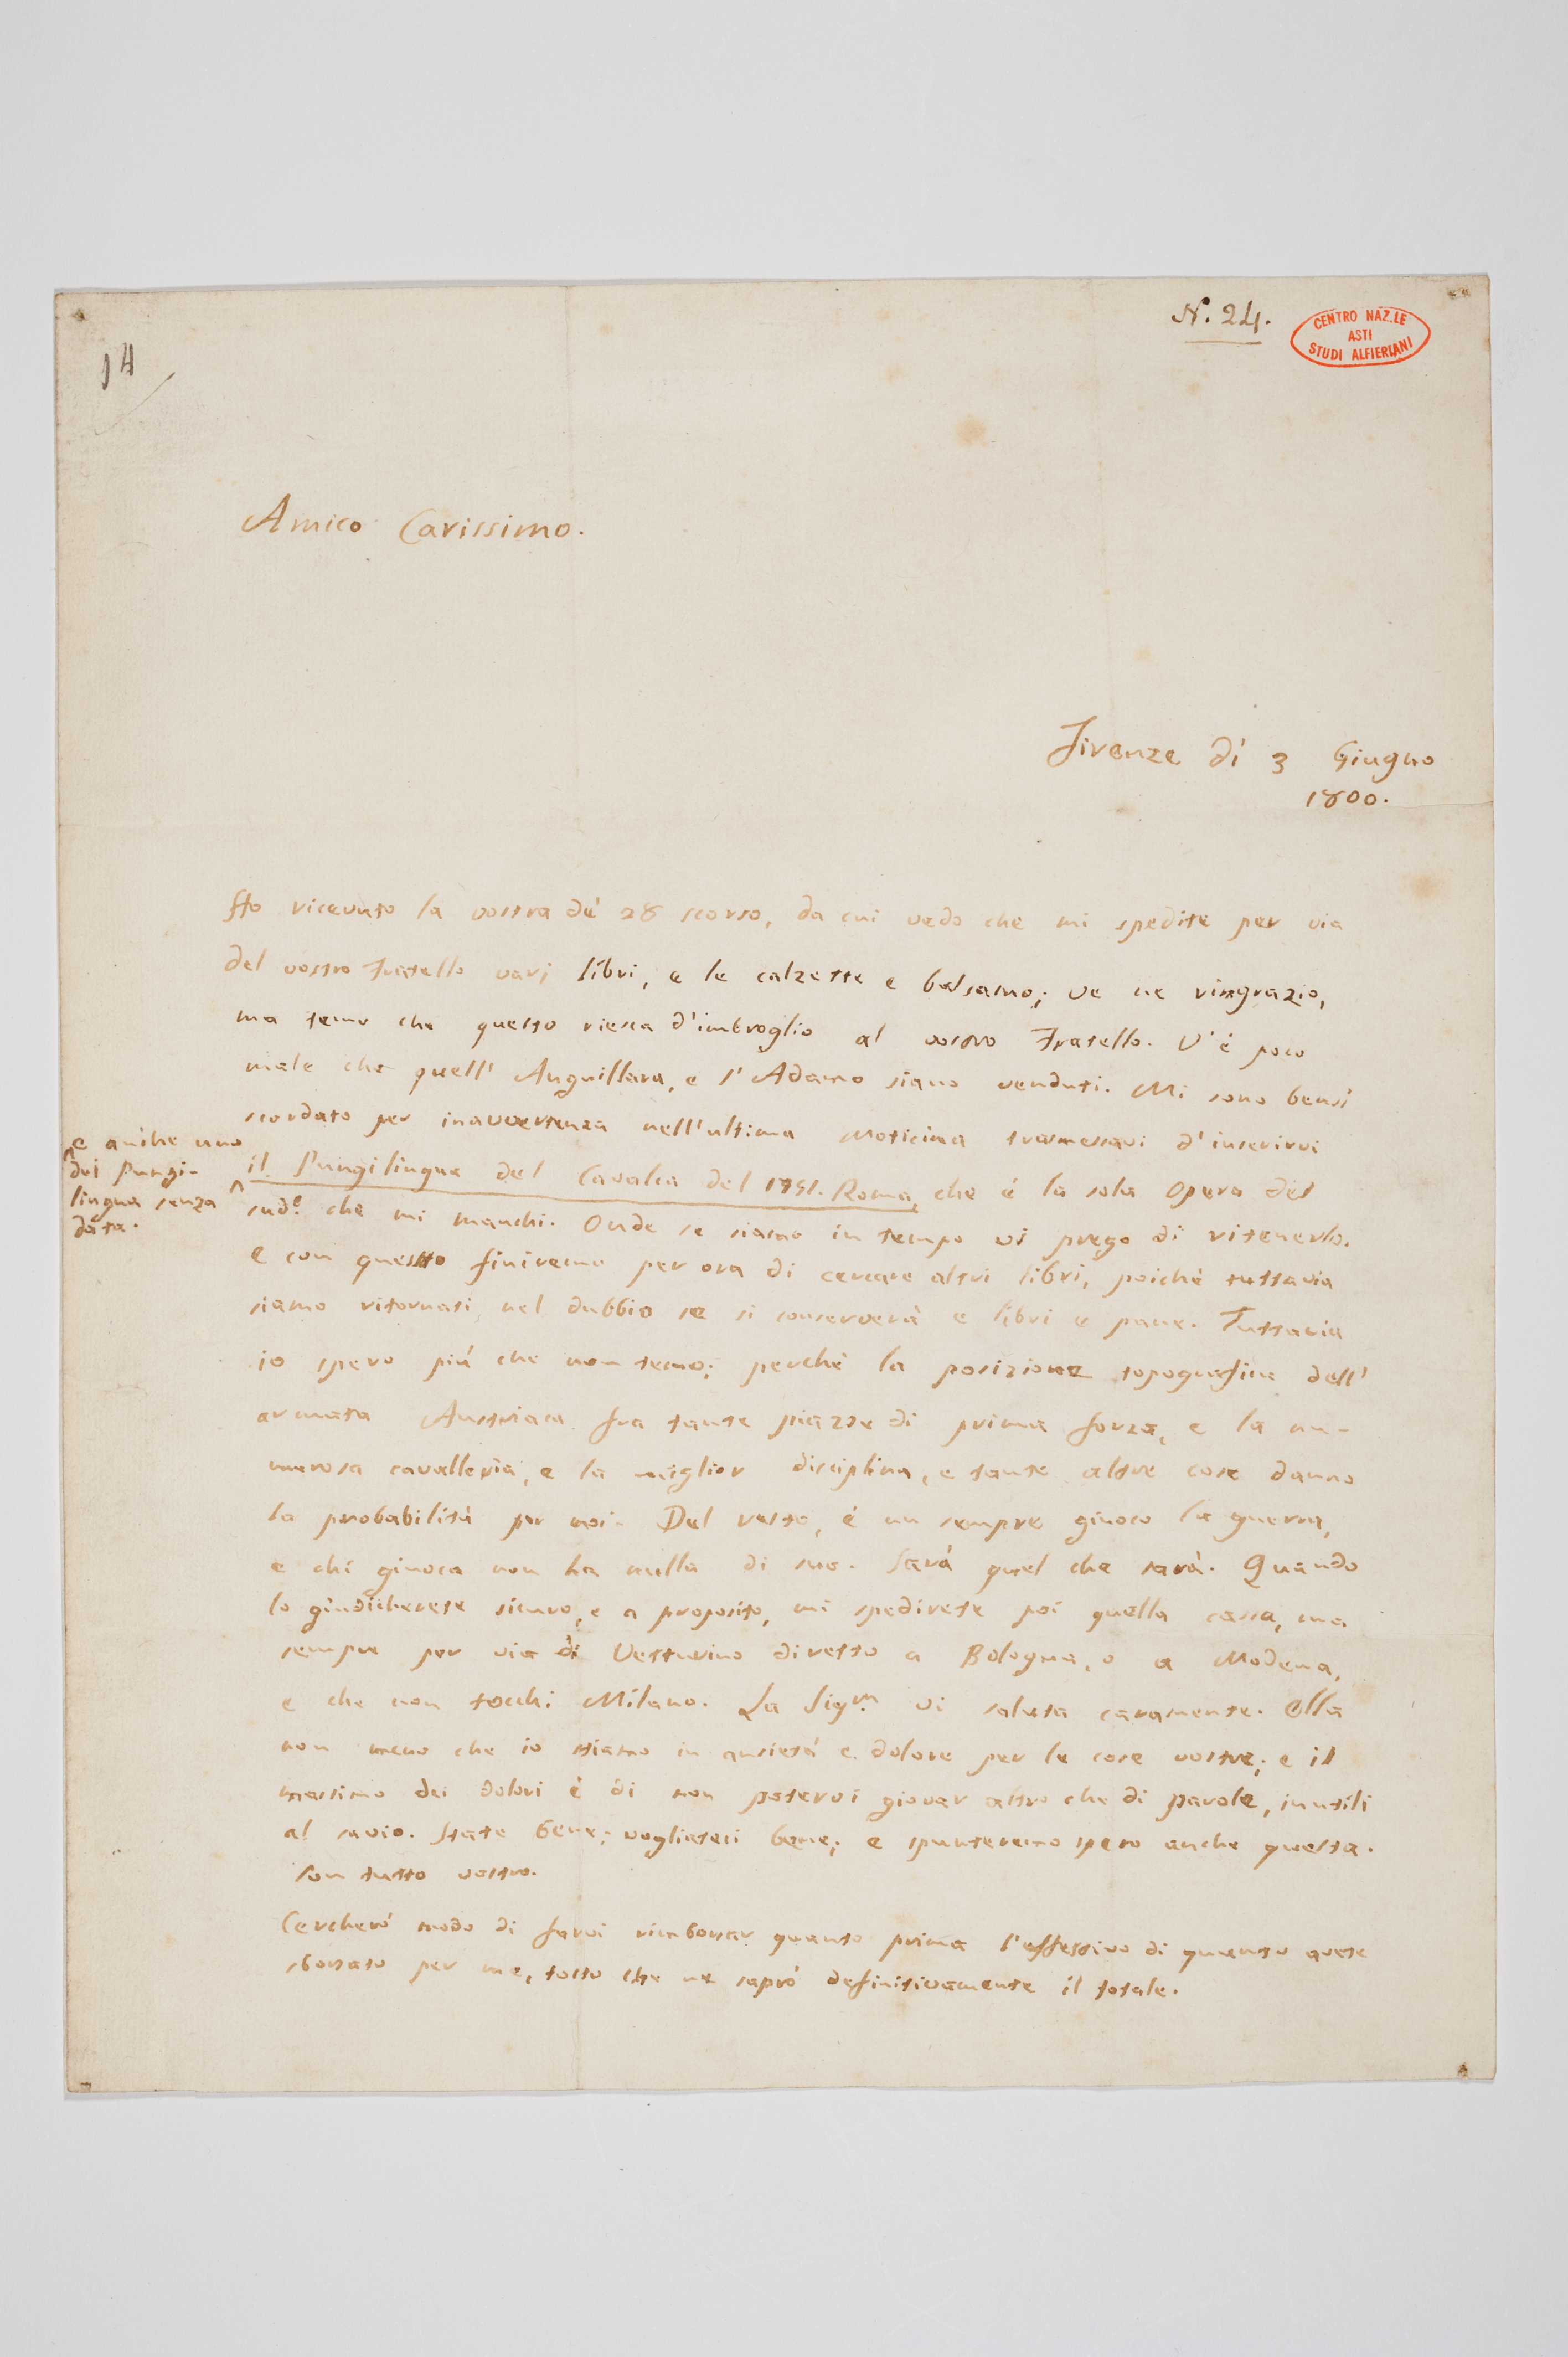 N.° 24.
CENTRO NAZ.LE
ASTI
STUDI ALFIERIANI
14
Amico Carissimo.
Firenze dì 3 Giugno
1800.
Ho ricevuto la vostra de' 28 scorso, da cui vedo che mi spedite per via
del vostro Fratello varj libri, e le calzette e balsamo; ve ne ringrazio,
ma temo che questo riesca d'imbroglio al vostro Fratello. V'è poco
male che quell' Anguillara, e l'Adamo siano venduti. Mi sono bensì
scordato per inavvertenza nell'ultima Noticina trasmessavi d'inserirvi
il Pungilingua del Cavalca del 1751. Roma, che è la sola Opera del
^e anche uno
dei Pungi-
lingua senza ^
data.
sud.° che mi manchi. Onde se siamo in tempo vi prego di ritenerlo.
e con questo finiremo per ora di cercare altri libri, poichè tuttavia
siamo ritornati nel dubbio se si conserverà e libri e pane. Tuttavia
io spero più che non temo; perchè la posizione topografica dell'
armata Austriaca fra tante piazze di prima forza, e la nu-
merosa cavalleria, e la miglior disciplina, e tante altre cose danno
la probabilità per noi. Del resto, è un sempre giuoco la guerra,
e chi giuoca non ha nulla di suo. Sarà quel che sarà. Quando
lo giudicherete sicuro, e a proposito, mi spedirete poi quella cassa, ma
sempre per via di Vetturino diretto a Bologna, o a Modena,
e che non tocchi Milano. La Sig.ra vi saluta caramente. Ella
non meno che io stiamo in ansietà e dolore per le cose vostre; e il
massimo dei dolori è di non potervi giovar altro che di parole, inutili
al savio. State bene; vogliateci bene; e spunteremo spero anche questa.
Son tutto vostro.
Cercherò modo di farvi rimborsar quanto prima l'effettivo di quanto avete
sborsato per me, tosto che ne saprò definitivamente il totale.